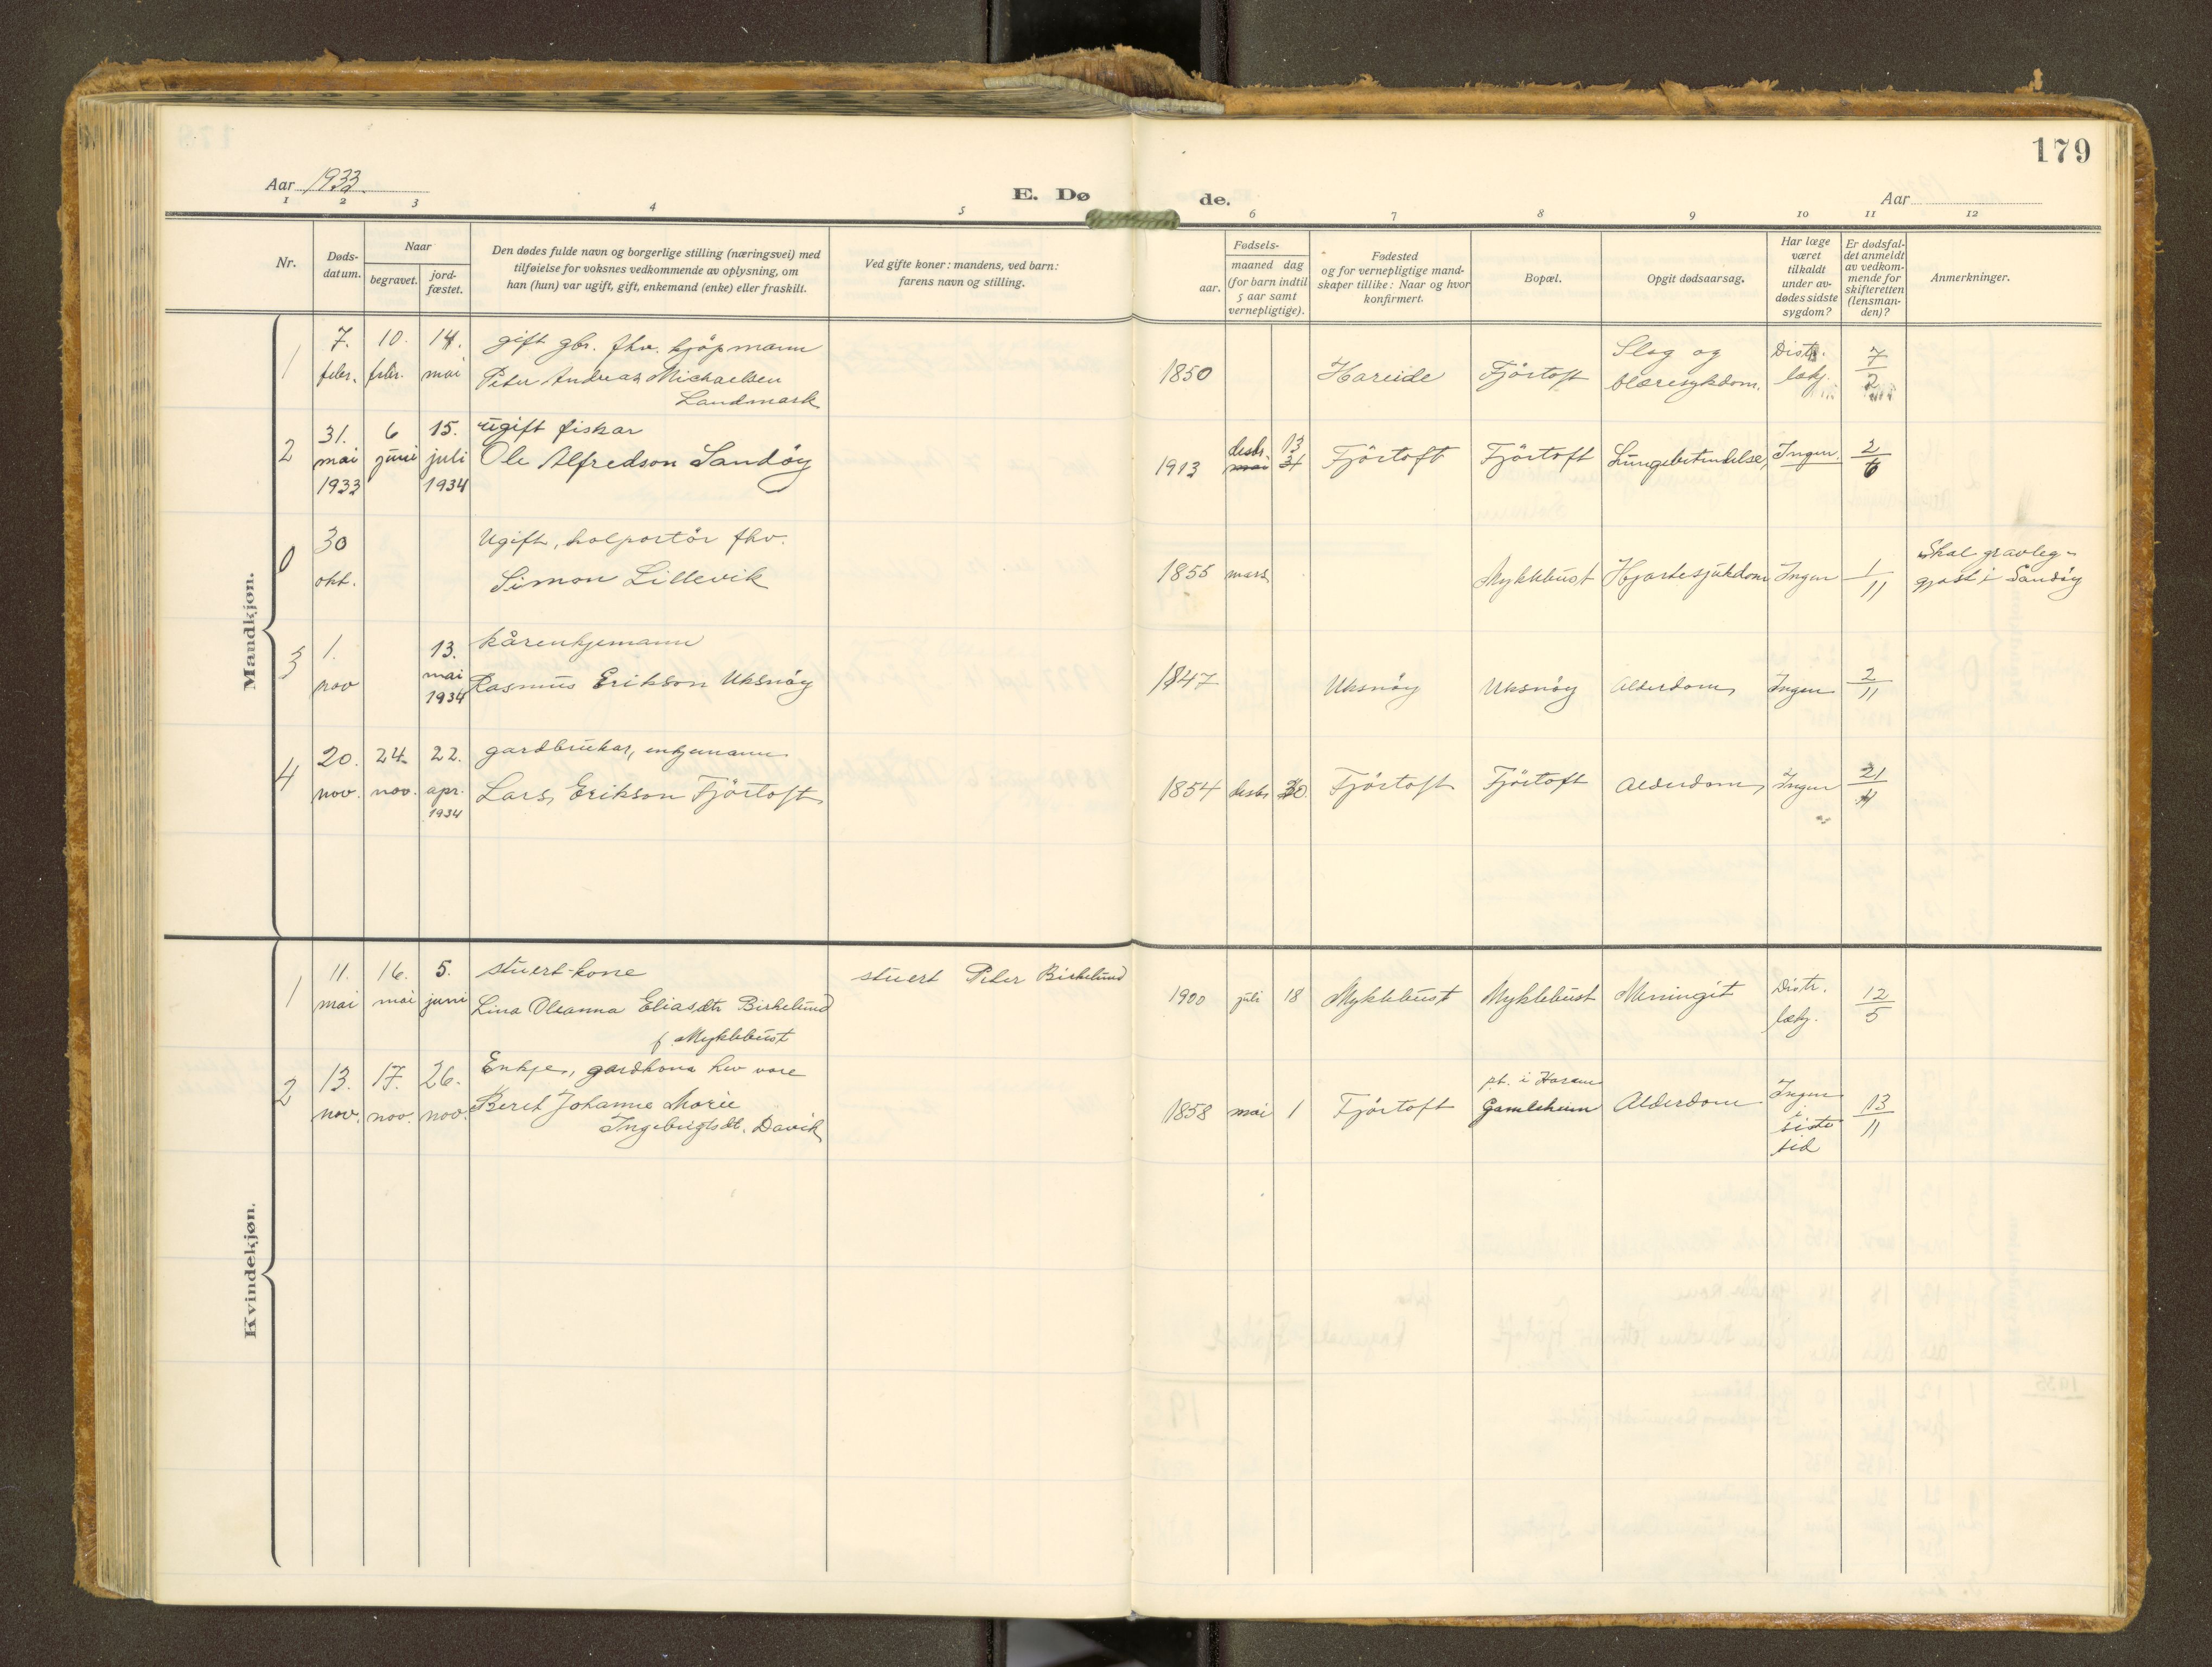 179
Aar 1933.
E. Dø
de.
Aar
1 2 3 4 5 6 7 8 9 10 11 12
Nr.
Døds-
datum.
Naar
begravet.
jord-
fæstet.
Den dødes fulde navn og borgerlige stilling (næringsvei) med
tilføielse for voksnes vedkommende av oplysning, om
han (hun) var ugift, gift, enkemand (enke) eller fraskilt.
Ved gifte koner: mandens, ved barn:
farens navn og stilling.
Fødsels-
aar.
maaned dag
(for barn indtil
5 aar samt
vernepligtige).
Fødested
og for vernepligtige mand-
skaper tillike: Naar og hvor
konfirmert.
Bopæl.
Opgit dødsaarsag.
Har læge
været
tilkaldt
under av-
dødes sidste
sygdom?
Er dødsfal-
det anmeldt
av vedkom-
mende for
skifteretten
(lensman-
den)?
Anmerkninger.
Mandkjøn.
1 7. 10. 14. gift gbr. fhv. kjöpmann
febr. febr. mai Peter Andreas Michaelsen
Landmark
1850 Hareide Fjörtoft
Slag og
blæresykdom.
Distr.
lækj.
7
2
2 31. 6 15. ugift fiskar
mai juni juli Ole Alfredson Sandöy
1933 1934
1913 desbr. 13
mai 31
Fjörtoft Fjörtoft Lungebetendelse, Ingen. 2
6
0 30 Ugift, kolportör fhv.
okt. Simon Lillevik
1855 mars Myklebust Hjartesjukdom Ingen 1
11
Skal gravleg-
gjast i Sandöy
3 1. 13. kårenkjemann
nov mai Rasmus Erikson Uksnöy
1934
1847 Uksnöy Uksnöy Alderdom, Ingen 2
11
4 20. 24. 22. gardbrukar, enkjemann
nov. nov. apr. Lars Erikson Fjörtoft
1934
1854 desbr 30. Fjörtoft Fjörtoft Alderdom, Ingen 21
11
Kvindekjøn.
1 11. 16. 5. stuert-kone
mai mai juni Lina Oleanna Eliasdtr Birkelund
f. Myklebust
stuert Peter Birkelund
1900 juli 18 Myklebust Myklebust Meningit
Distr.
lækj.
12
5
2 13. 17. 26. Enkje, gardkona hev vore
nov. nov. nov. Berit Johanne Marie
Ingebrigtsdt. Davik
1858 mai 1 Fjörtoft
pt. i Haram
Gamleheim
Alderdom
Ingen
i
siste
tid
13
11